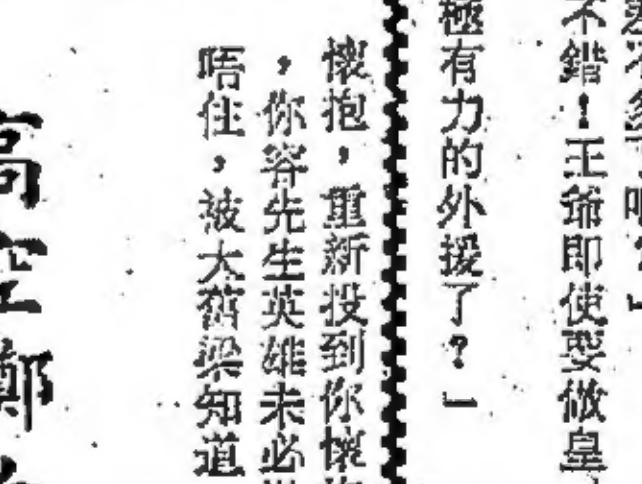 不錯！王爺即使要做皇
極有力的外援了？」
懷抱，重新投到你懷
，你容先生英雄未必
唔住，被大舊梁知道
高空鄭